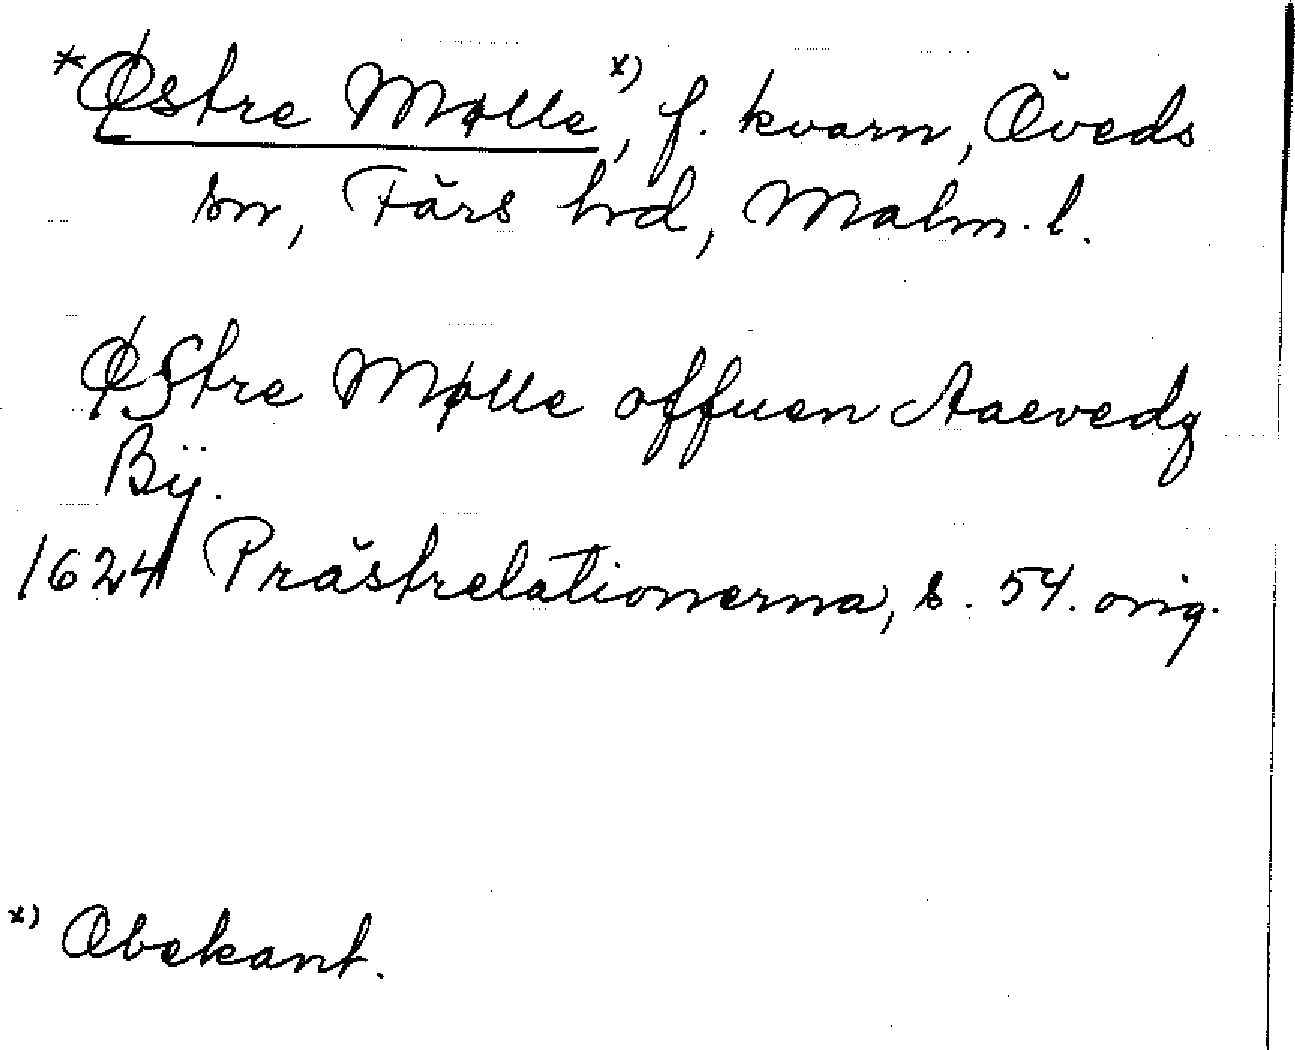 *Østre Mølle x), f. kvarn, Öveds
sn, Färs hd, Malm. l.
Østre Mølle offuen Aaevedz
Bÿ.
1624 Prästrelationerna, s. 54. orig.
x) Obekant.